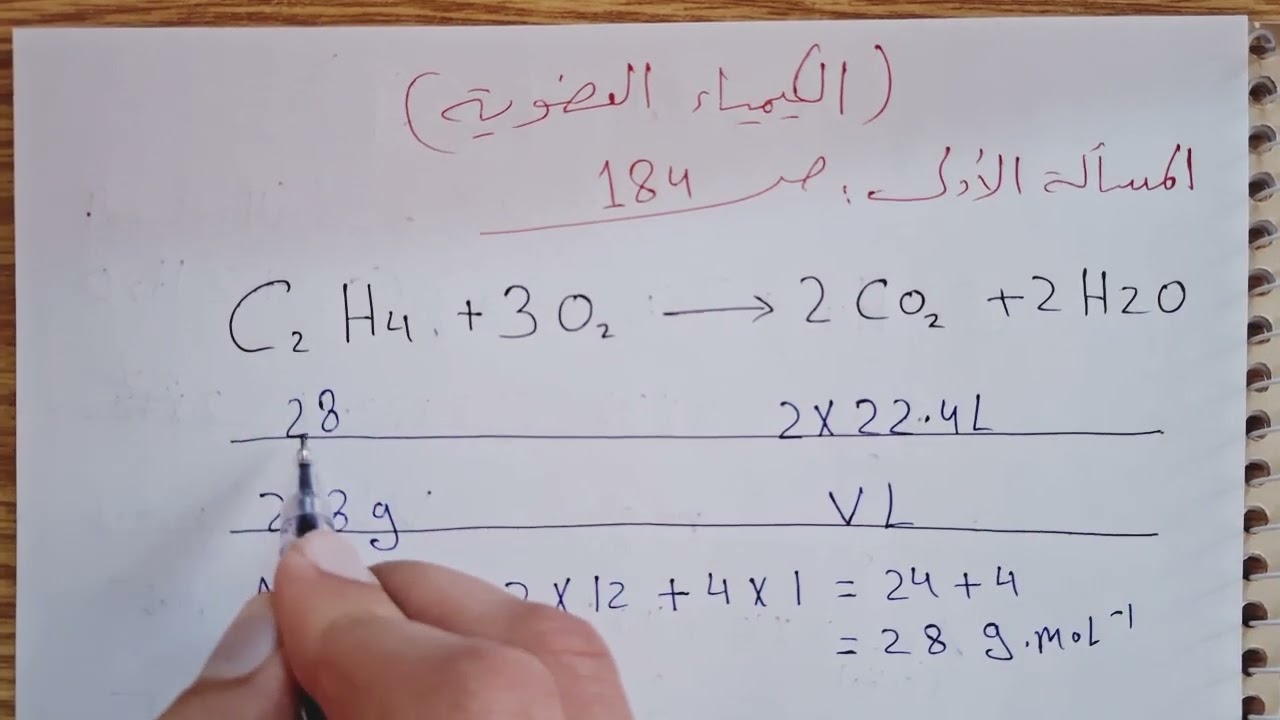 (الكيمياء العضوية)
المسألة الأولى: ص 184
C₂H₄ + 3O₂ → 2CO₂ + 2H2O
28 2×22.4L
g VL
2×12 + 4×1 = 24 + 4
= 28 g.moL⁻¹